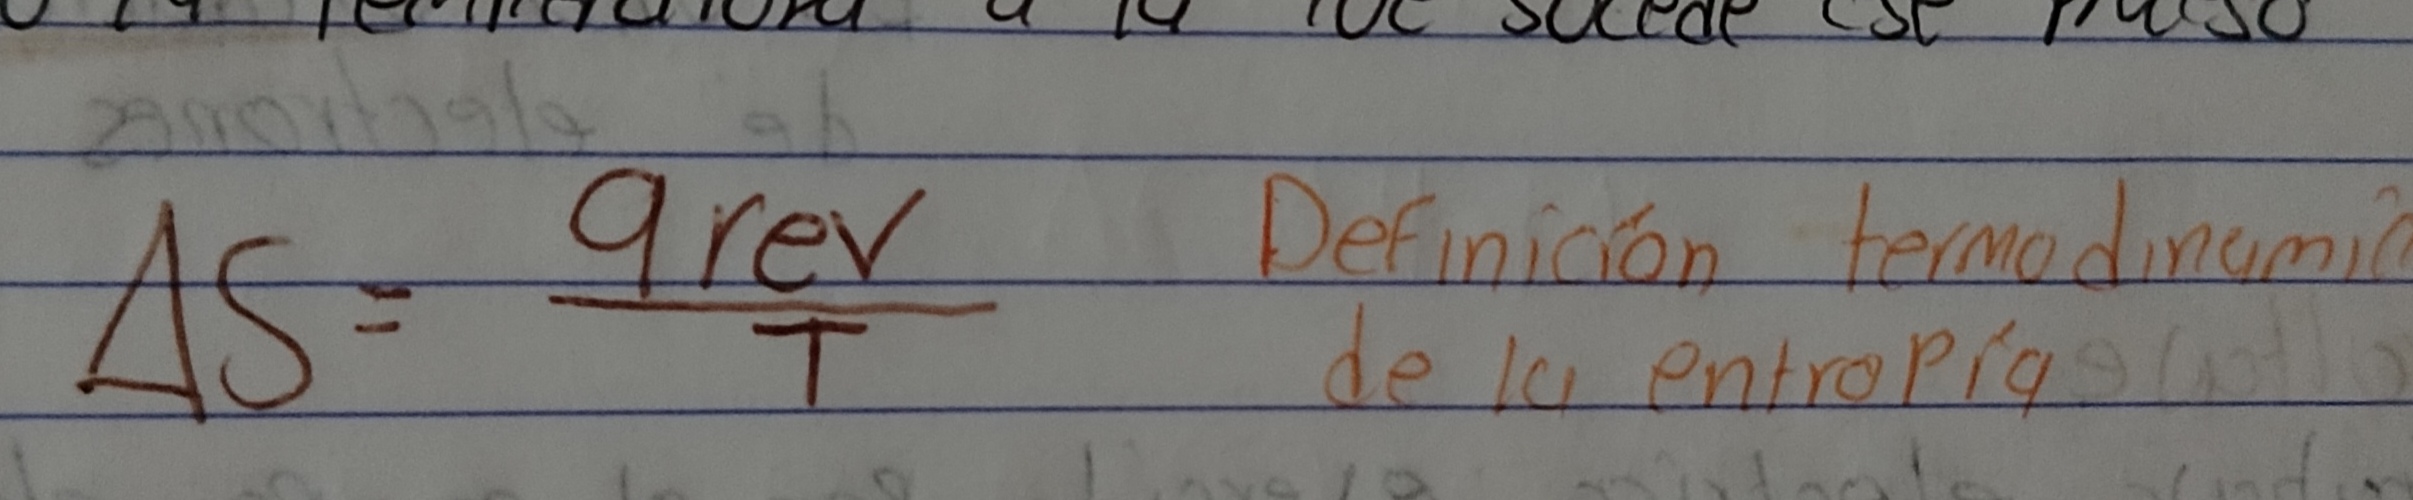 la temperatura a la que sucede ese paso
ΔS = q rev / T Definición termodinamic
de la entropía